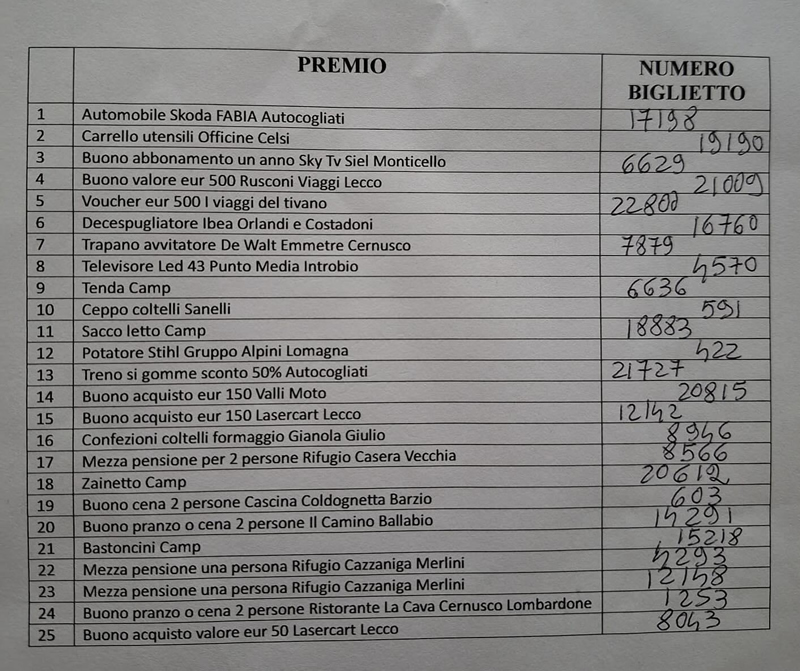 PREMIO NUMERO BIGLIETTO
1 Automobile Skoda FABIA Autocogliati 17198
2 Carrello utensili Officine Celsi 19190
3 Buono abbonamento un anno Sky Tv Siel Monticello 6629
4 Buono valore eur 500 Rusconi Viaggi Lecco 21009
5 Voucher eur 500 I viaggi del tivano 22800
6 Decespugliatore Ibea Orlandi e Costadoni 16760
7 Trapano avvitatore De Walt Emmetre Cernusco 7879
8 Televisore Led 43 Punto Media Introbio 4570
9 Tenda Camp 6636
10 Ceppo coltelli Sanelli 591
11 Sacco letto Camp 18883
12 Potatore Stihl Gruppo Alpini Lomagna 422
13 Treno si gomme sconto 50% Autocogliati 21727
14 Buono acquisto eur 150 Valli Moto 20815
15 Buono acquisto eur 150 Lasercart Lecco 12142
16 Confezioni coltelli formaggio Gianola Giulio 8946
17 Mezza pensione per 2 persone Rifugio Casera Vecchia 8566
18 Zainetto Camp 20612
19 Buono cena 2 persone Cascina Coldognetta Barzio 603
20 Buono pranzo o cena 2 persone Il Camino Ballabio 14291
21 Bastoncini Camp 15218
22 Mezza pensione una persona Rifugio Cazzaniga Merlini 4293
23 Mezza pensione una persona Rifugio Cazzaniga Merlini 12148
24 Buono pranzo o cena 2 persone Ristorante La Cava Cernusco Lombardone 1253
25 Buono acquisto valore eur 50 Lasercart Lecco 8043